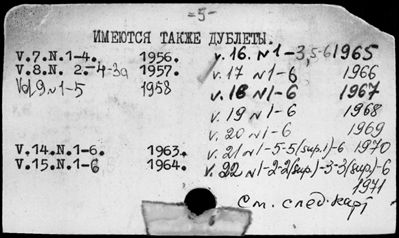 -5-
ИМЕЮТСЯ ТАКЖЕ ДУБЛЕТЫ.
V.7.N.1-4. 1956. V.16. N1-3,5-6 1965
V.8.N. 2.-4-3а 1957. V.17 N1-6 1966
Vol.9 N1-5 1958 V.18 N1-6 1967
V.19 N1-6 1968
V.20 N1-6 1969
V.14.N.1-6. 1963. V.21 N1-5-5(sup.1)-6 1970
V.15.N.1-6 1964. V.22 N1-2-2(sup.)-3-3(sup)-6
1971
См. след. карт